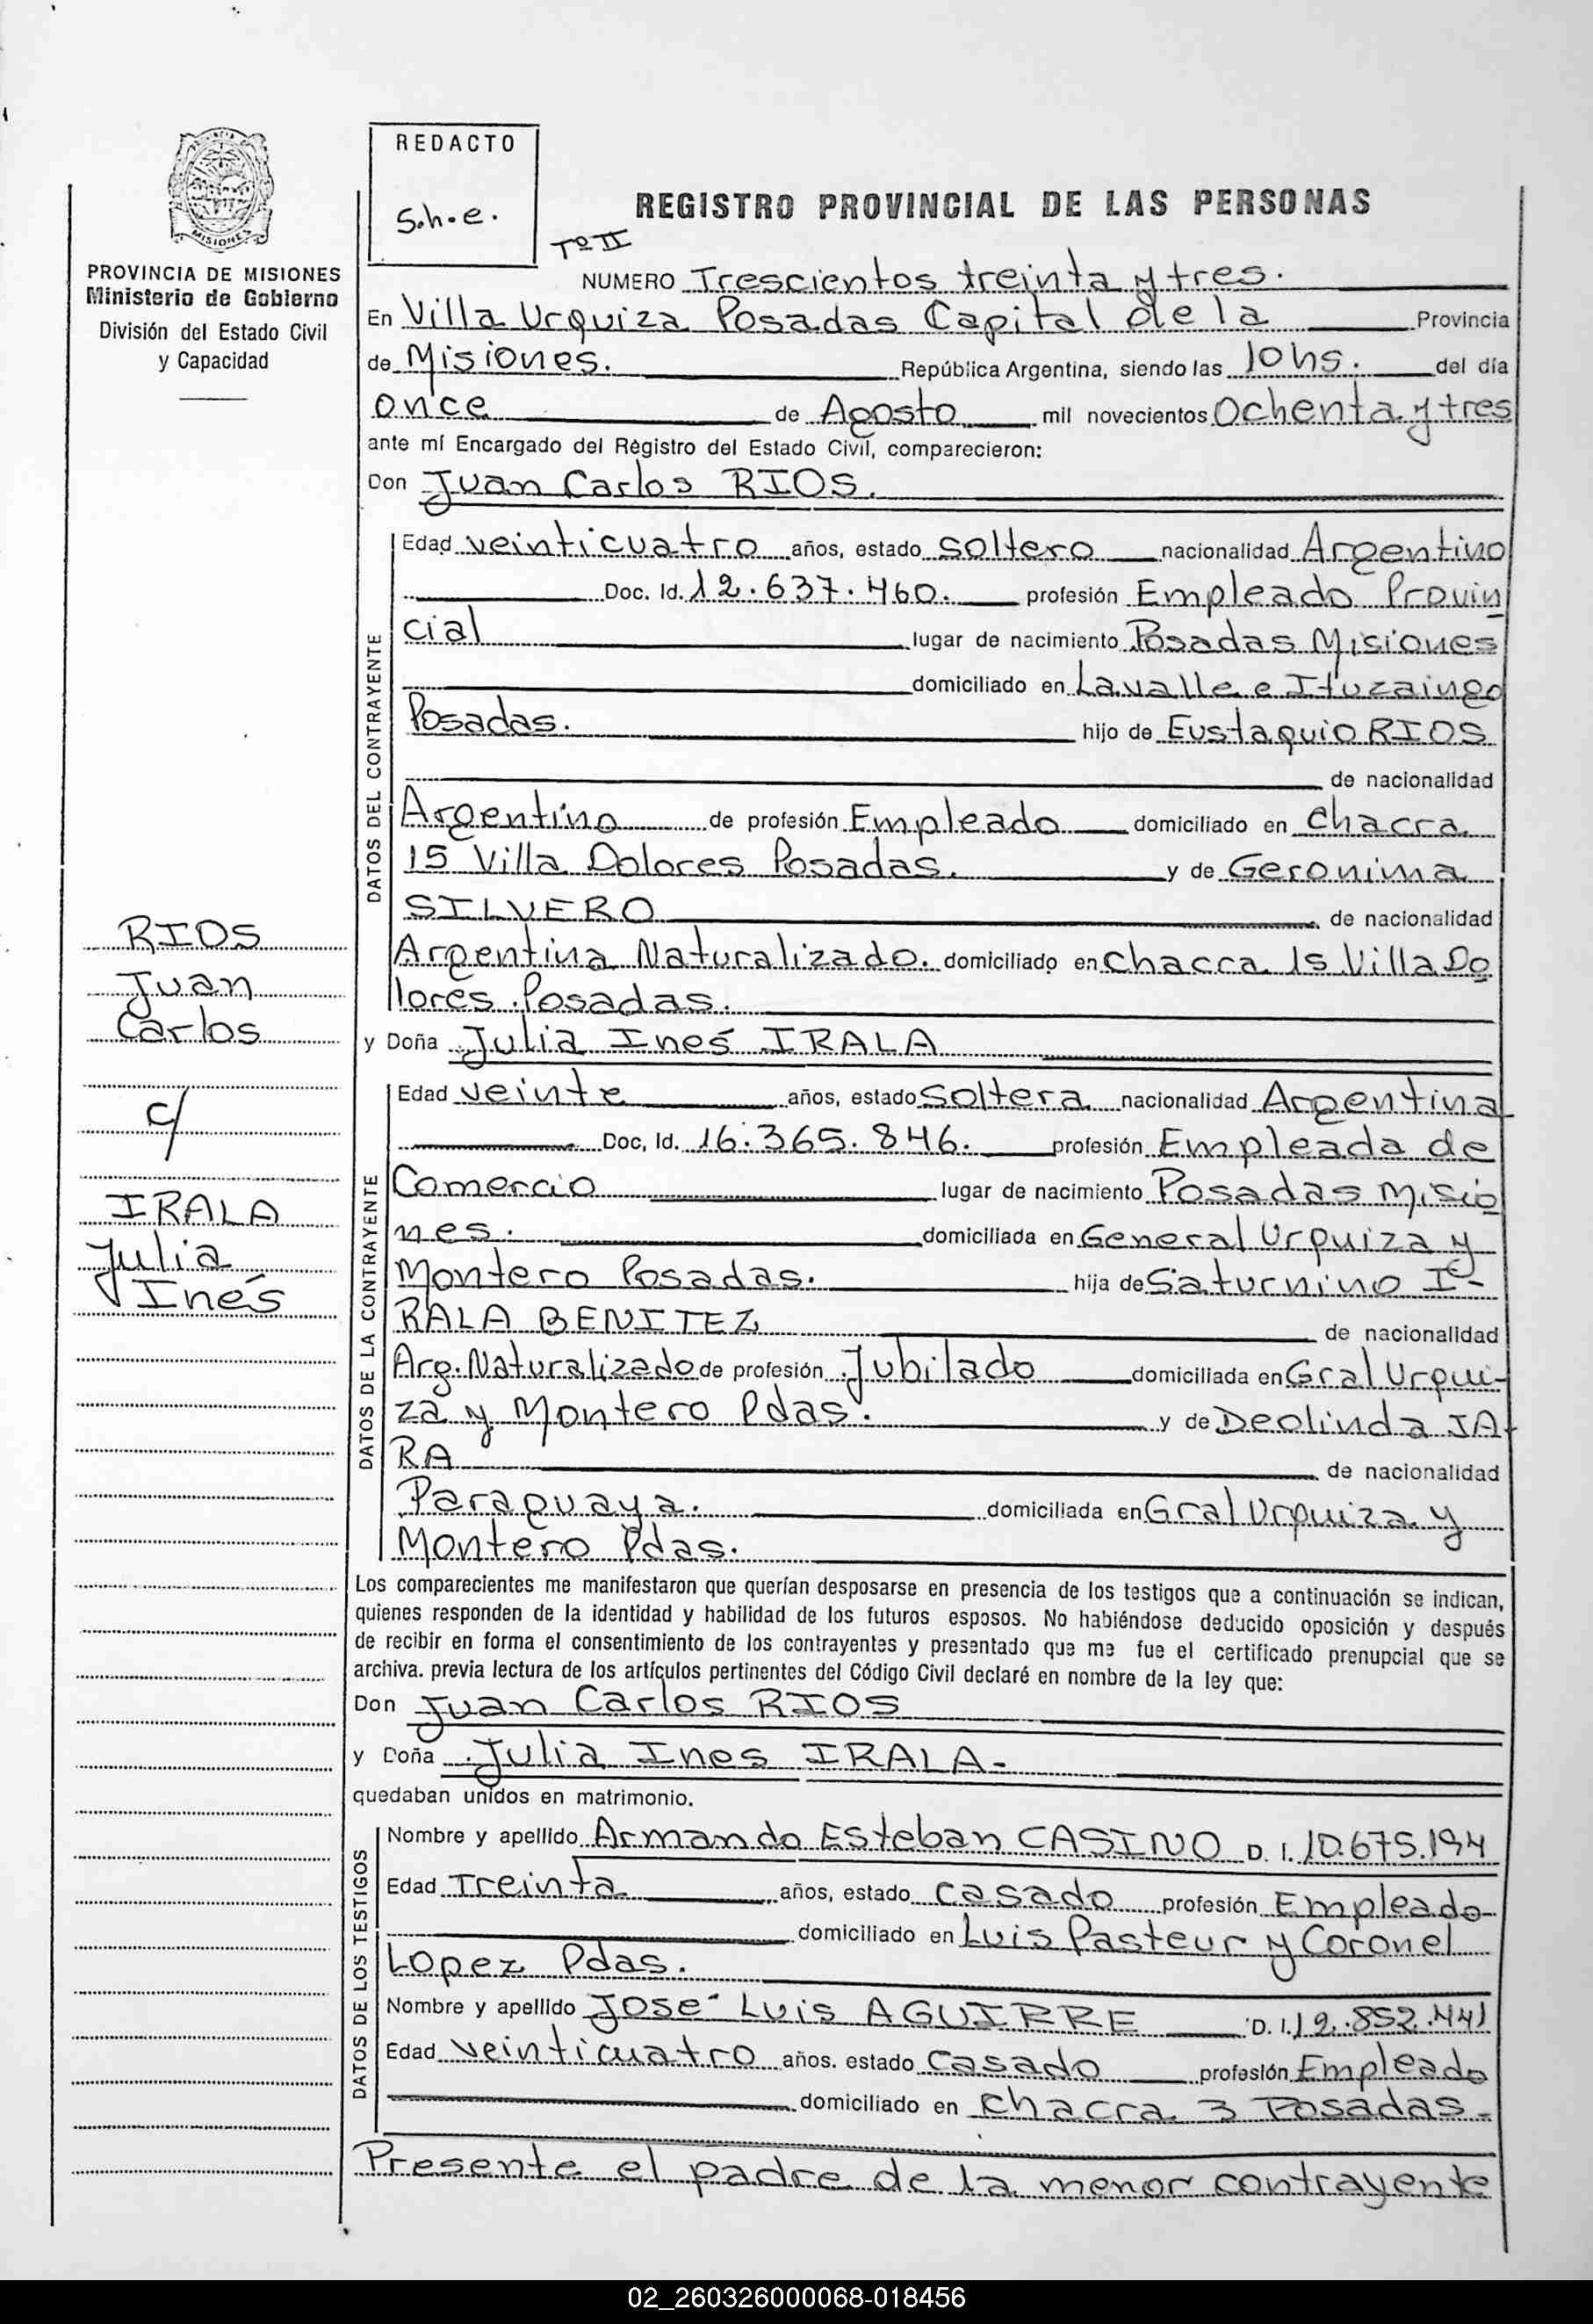 REDACTO
S.h.e.
REGISTRO PROVINCIAL DE LAS PERSONAS
Tº II
NUMERO Trescientos treinta y tres.
MISIONES
PROVINCIA DE MISIONES
Ministerio de Gobierno
División del Estado Civil
y Capacidad
En Villa Urquiza Posadas Capital de la Provincia
de Misiones. República Argentina, siendo las 10 hs. del día
once de Agosto mil novecientos Ochenta y tres
ante mí Encargado del Registro del Estado Civil, comparecieron:
Don Juan Carlos RIOS.
DATOS DEL CONTRAYENTE
Edad veinticuatro años, estado soltero nacionalidad Argentino
Doc. Id. 12.637.460. profesión Empleado Provin
cial lugar de nacimiento Posadas Misiones
domiciliado en Lavalle e Ituzaingo
Posadas. hijo de Eustaquio RIOS
de nacionalidad
Argentino de profesión Empleado domiciliado en Chacra
15 Villa Dolores Posadas. y de Geronima
SILVERO de nacionalidad
Argentina Naturalizado. domiciliado en chacra 15 Villa Do
lores Posadas.
RIOS
Juan
Carlos
c/
IRALA
Julia
Inés
y Doña Julia Inés IRALA
DATOS DE LA CONTRAYENTE
Edad veinte años, estado Soltera nacionalidad Argentina
Doc, Id. 16.365.846. profesión Empleada de
Comercio lugar de nacimiento Posadas Misio
nes. domiciliada en General Urquiza y
Montero Posadas. hija de Saturnino I-
RALA BENITEZ de nacionalidad
Arg. Naturalizado de profesión Jubilado domiciliada en Gral Urqui-
za y Montero Pdas. y de Deolinda JA-
RA de nacionalidad
Paraguaya. domiciliada en Gral Urquiza y
Montero Pdas.
Los comparecientes me manifestaron que querían desposarse en presencia de los testigos que a continuación se indican,
quienes responden de la identidad y habilidad de los futuros esposos. No habiéndose deducido oposición y después
de recibir en forma el consentimiento de los contrayentes y presentado que me fue el certificado prenupcial que se
archiva. previa lectura de los artículos pertinentes del Código Civil declaré en nombre de la ley que:
Don Juan Carlos RIOS
y Doña Julia Ines IRALA-
quedaban unidos en matrimonio.
DATOS DE LOS TESTIGOS
Nombre y apellido Armando Esteban CASINO D. I. 10.675.194
Edad Treinta años, estado casado profesión Empleado
domiciliado en Luis Pasteur y Coronel
Lopez Pdas.
Nombre y apellido José Luis AGUIRRE D. I. 12.852.441
Edad veinticuatro años. estado casado profesión Empleado
domiciliado en chacra 3 Posadas-
Presente el padre de la menor contrayente
02_260326000068-018456